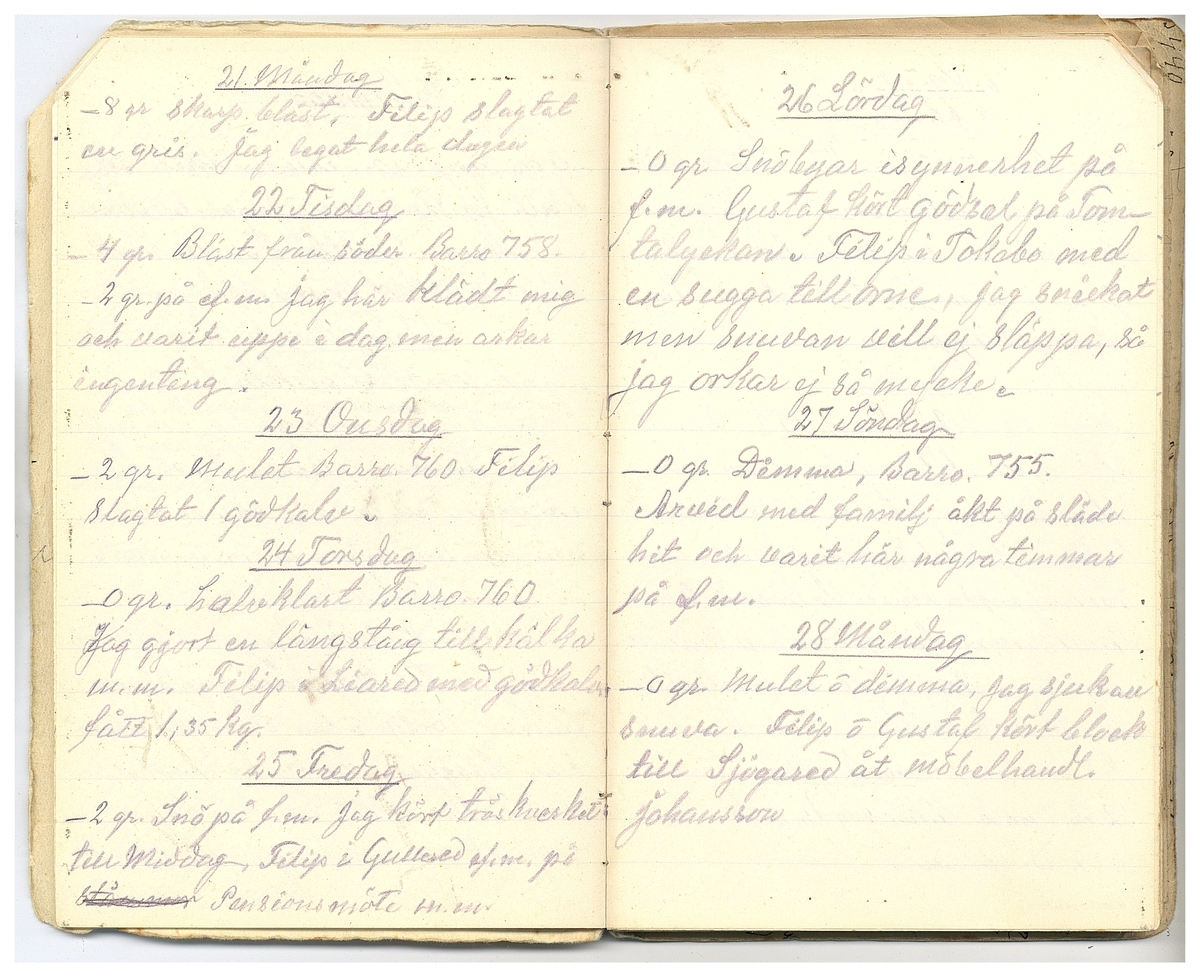 21. Måndag
-8 gr skarp blåst, Filip slagtat
en gris. Jag legat hela dagen
22 Tisdag
- 4 gr. Blåst från söder. Barro 758.
-2 gr. på ef.m. Jag har klädt mig
och varit uppe i dag men orkar
ingenting.
23 Onsdag
-2 gr. Mulet Barro. 760 Filip
slagtat 1 gödkalv.
24 Torsdag
-0 gr. halvklart Barro. 760
Jag gjort en långståig till kälka
m.m. Filip i Liared med gödkalv
fått 1,35 kg.
25 Fredag
-2 gr. Snö på f.m. Jag kört tröskverket
till Middag, Filip i Gullered ef.m. på
Pensionsmöte m.m.
26 Lördag
-0 gr. Snöbyar isynnerhet på
f.m. Gustaf kört gödsel på Tom-
talyckan. Filip i Tokabo med
en sugga till orne, jag snickat
men snuvan vill ej släppa, så
jag orkar ej så mycke.
27 Söndag
-0 gr. Dimma, Barro. 755.
Arvid med familj åkt på släde
hit och varit här några timmar
på ef.m.
28 Måndag
-0 gr. Mulet o dimma, Jag sjuk av
snuva. Filip o Gustaf kört block
till Sjögared åt möbelhandl.
Johansson